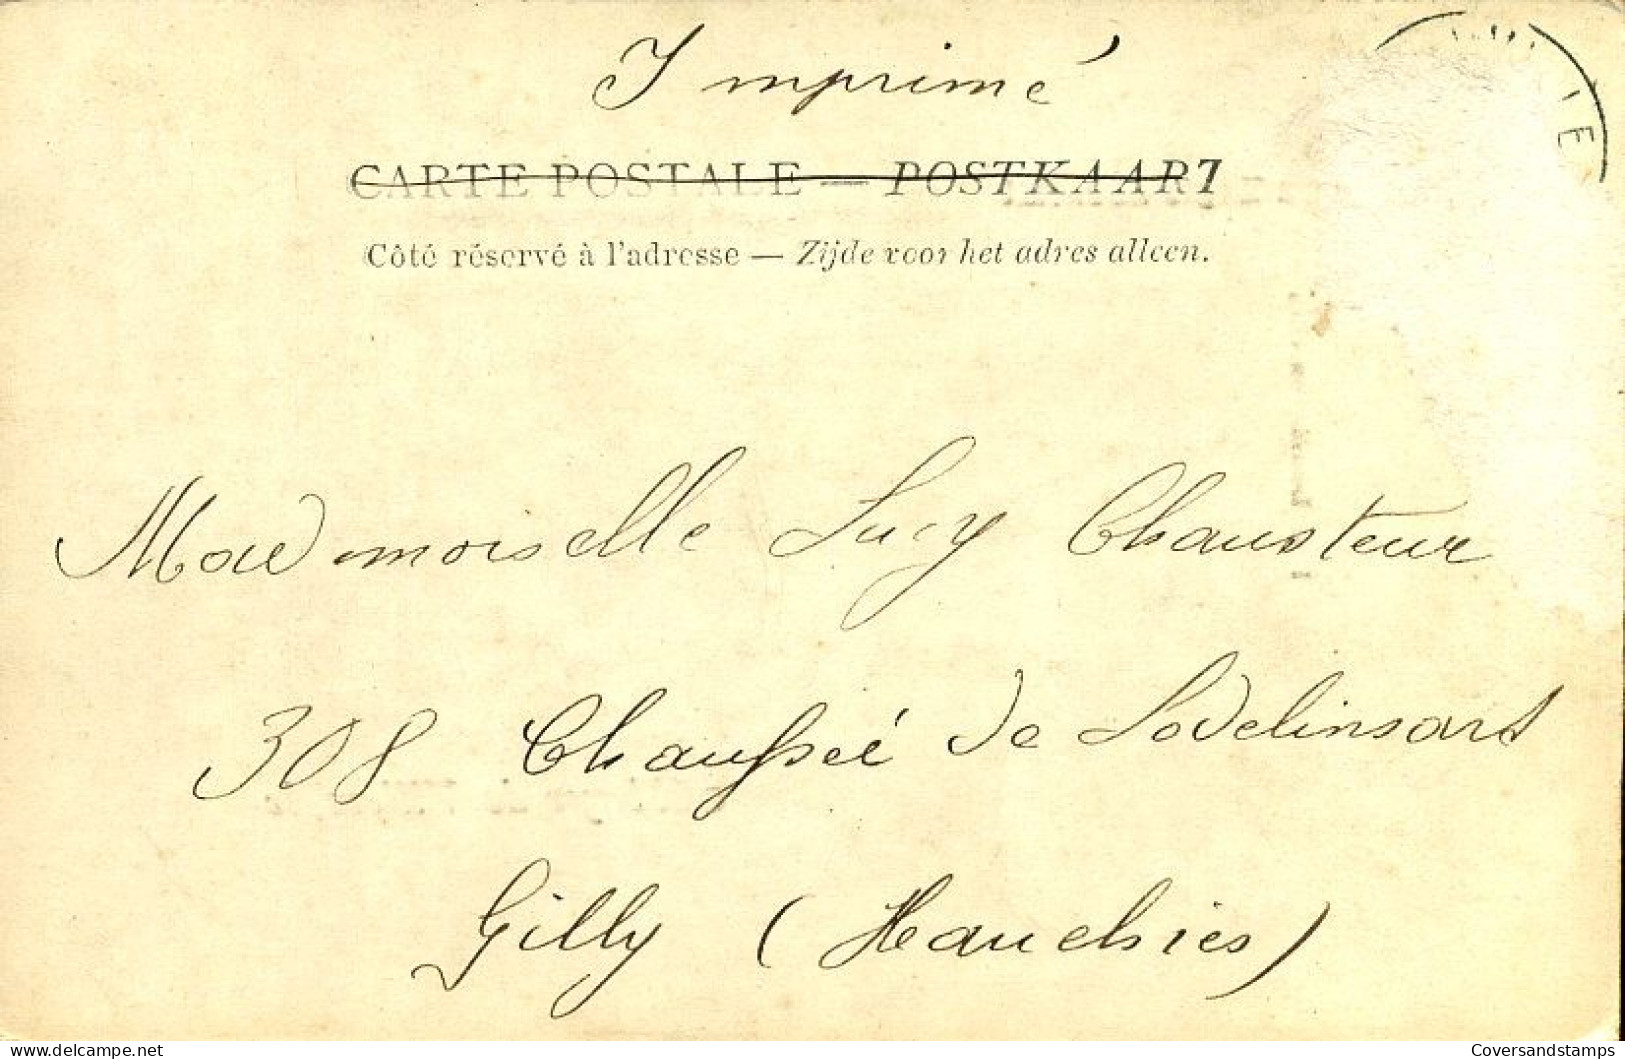 Imprimé
CARTE POSTALE — POSTKAART
Côté réservé à l'adresse — Zijde voor het adres alleen.
Mademoiselle Lucy Chausteur
308 Chaussée de Lodelinsart
Gilly (Hauchies)
delcampe.net
Coversandstamps